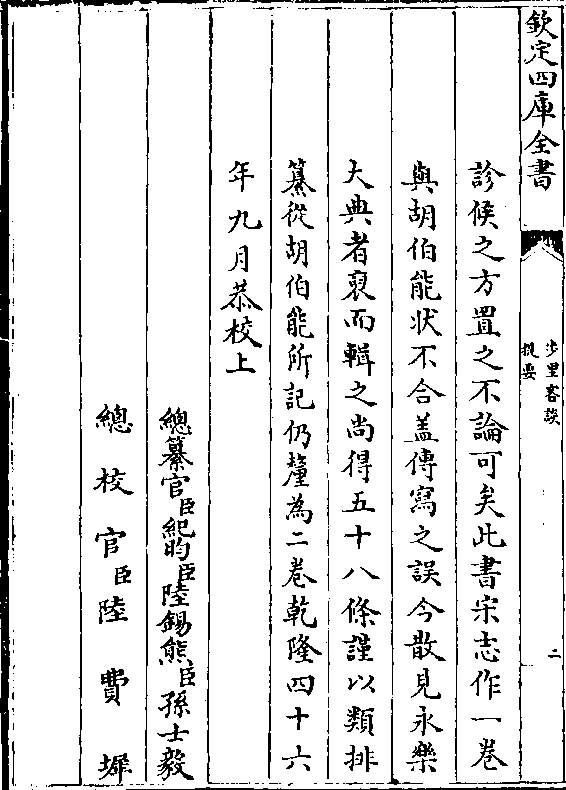 欽定四庫全書
步里客談
提要
二
診候之方置之不論可矣此書宋志作一卷
與胡伯能狀不合蓋傳寫之誤今散見永樂
大典者裒而輯之尚得五十八條謹以類排
纂從胡伯能所記仍釐為二卷乾隆四十六
年九月恭校上
總纂官臣紀昀臣陸錫熊臣孫士毅
總校官臣陸費墀